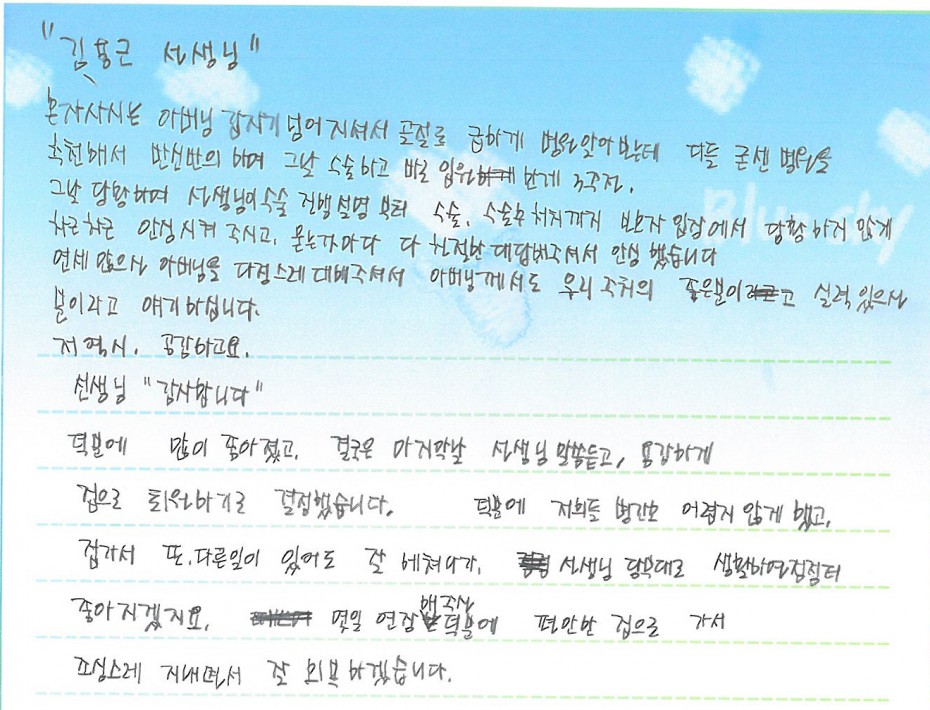 "김용근 선생님"
혼자사시는 아버님 갑자기 넘어지셔서 골절로 급하게 병원 알아보는데 다들 굳센 병원을
추천해서 반신반의 하며 그날 수술하고 바로 입원 한게 3주전.
그날 당황하며 선생님의 수술 전 설명 부터 수술, 수술후 처치까지 보호자 입장에서 당황 하지 않게
차근차근 안심 시켜 주시고, 묻는거마다 다 친절한 대답해주셔서 안심 했습니다
연세 많으신 아버님을 다정스레 대해주셔서 아버님께서도 우리 주치의 좋은분이고 실력 있으신
분이라고 얘기하십니다.
저 역시, 공감하고요.
선생님 "감사합니다"
덕분에 많이 좋아졌고, 결국은 마지막날 선생님 말씀듣고, 용감하게
집으로 퇴원하기로 결심했습니다. 덕분에 저희들 병간호 어렵지 않게 했고,
집가서 또.다른일이 있어도 잘 헤쳐나가, 선생님 당부대로 생활하면 점점더
좋아지겠지요. 몇일 연장 해주신 덕분에 편안한 집으로 가서
조심스레 지내면서 잘 회복 하겠습니다.
Blue sky